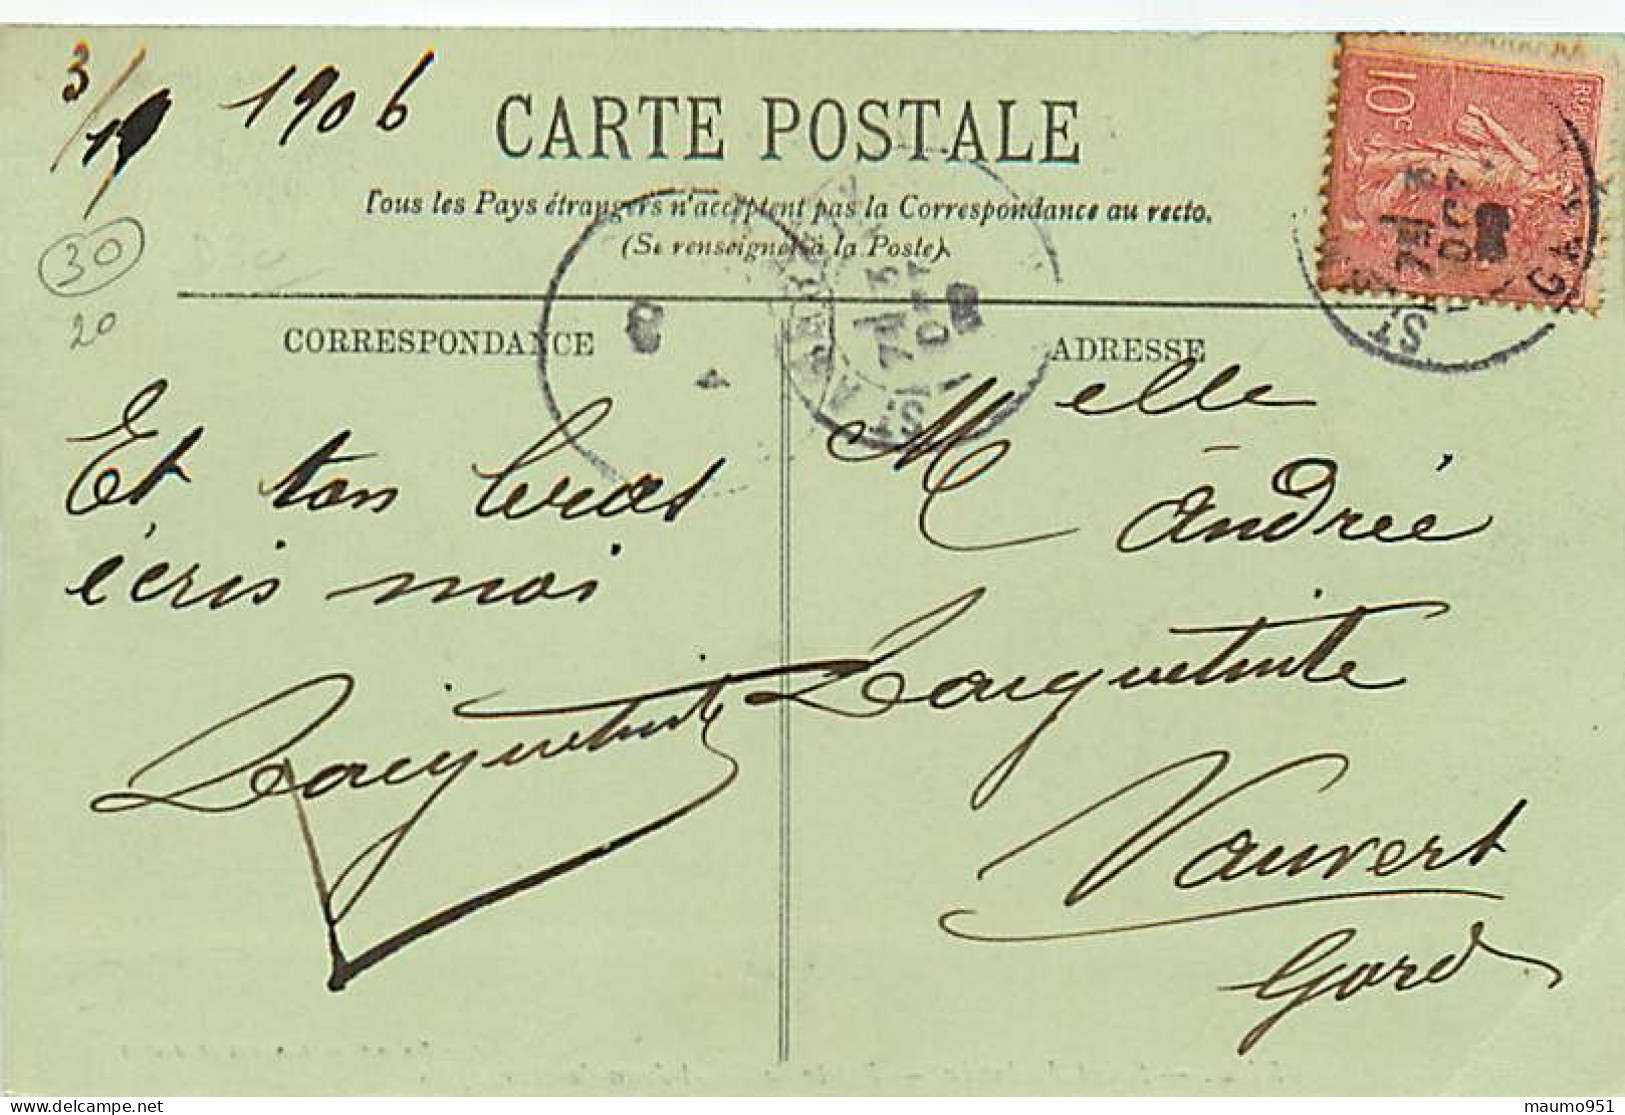 3/19 1906
30
20
CARTE POSTALE
Tous les Pays étrangers n'acceptent pas la Correspondance au recto.
(Se renseigner à la Poste).
CORRESPONDANCE
Et ton bras
écris moi
ADRESSE
Melle
Andrée
Vauvert
Gard
10c
ST
GARD
maumo951